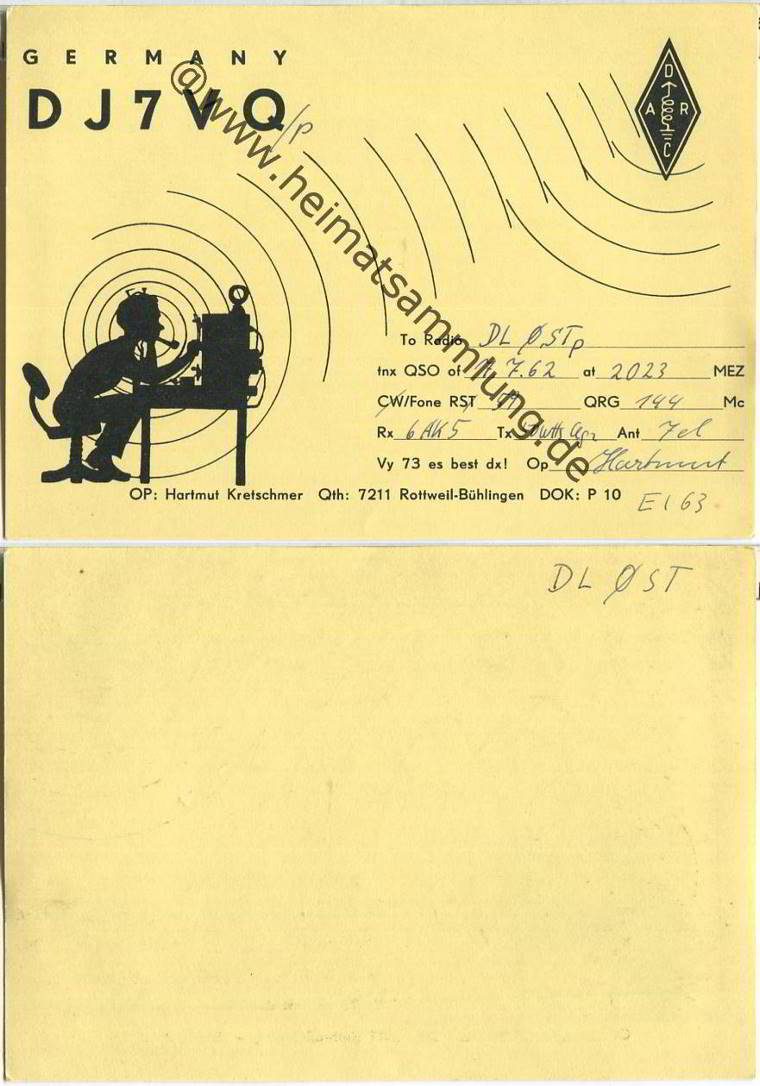 GERMANY
DJ7VQ/p
DARC
@www.heimatsammlung.de
To Radio DL ØST p
tnx QSO of 7.62 at 2023 MEZ
CW/Fone RST QRG 144 Mc
Rx 6AK5 Tx Ant 7el
Vy 73 es best dx! Op Hartmut
OP: Hartmut Kretschmer Qth: 7211 Rottweil-Bühlingen DOK: P 10
EI63
DL ØST